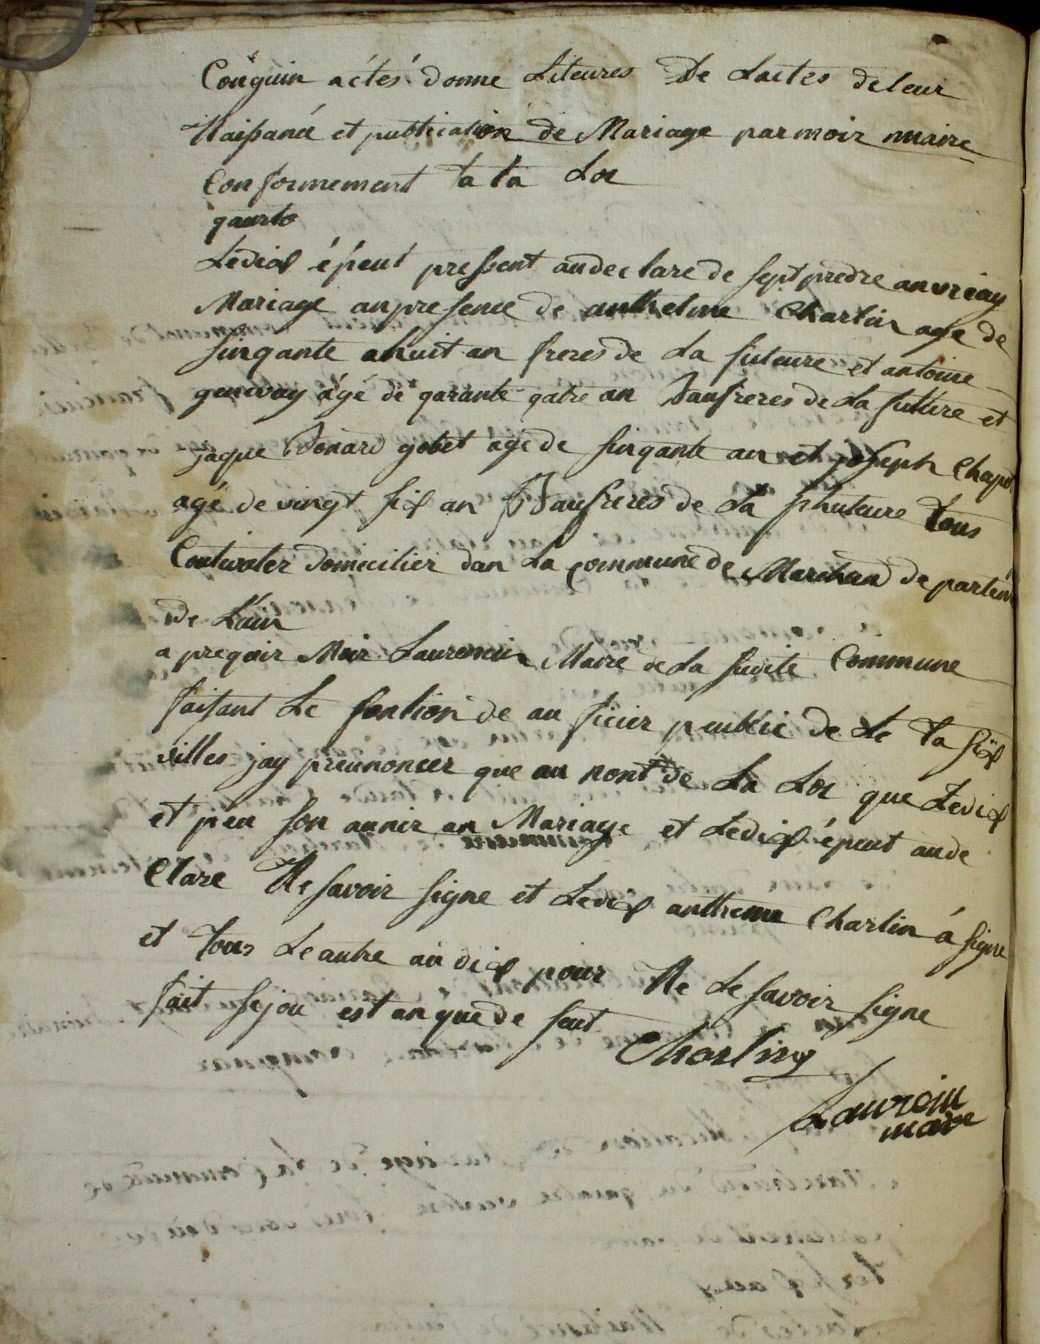 Conguin a étés donne Liteures De Lactes deleur
Naissance et publication de Mariage par moir maire
Conformement ta ta Loe
quurto
Ledix épeut pressent andeclare de sept predre an
Mariage an presence de anthelme Charlin age de
sinqante ahuit an freres de La futeure et antoine
genevay âgé de qarante qatre an Baufreres de La future et
jaque Bonard gobet age de sinqante an et joseph Chapo
agé de vingt six an Baufreres de La phuteure tous
Coutivater domicilier dan La commune de Marchan departem
de Lain
apreqoir Moir Lauroncin Maire de La sudite Commune
faisant Le fontion de au ficier peublic de Le ta six
villes jay preunoncer que au nont de La Loe que Ledix
et peu son aunir an Mariage et Ledix épeut ande
Clare Ne savoir signe et Ledix anthelme Charlin á signe
et tous Le autre an dix pour Ne Le savoir signe
fait Se jou est an que de sut
Charlin
Lauroin
mare